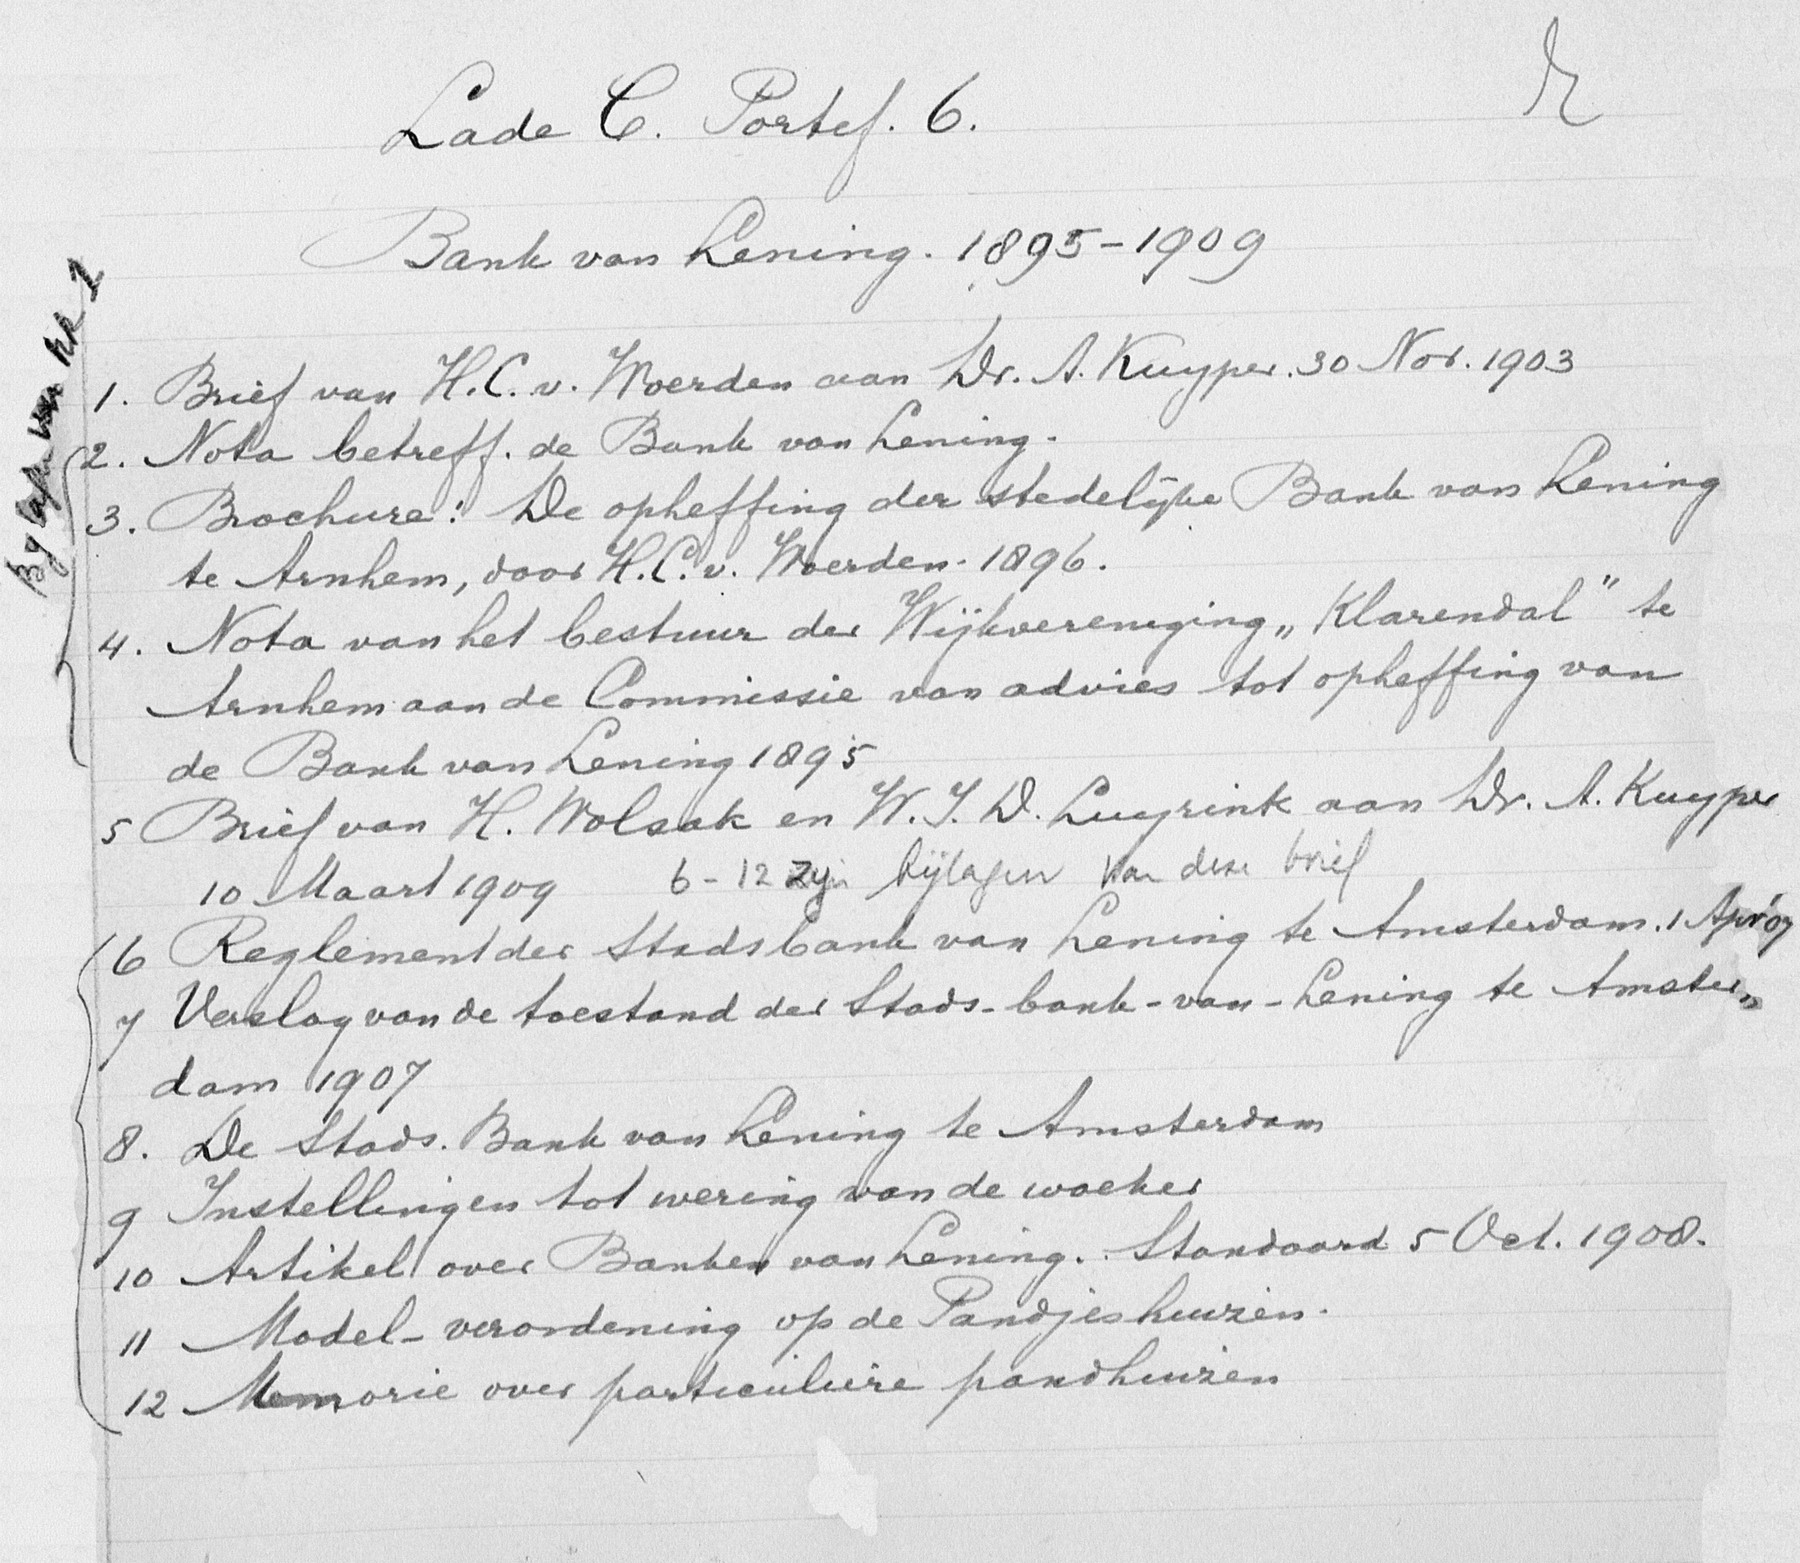 Lade C. Portef. 6.
Bank van Leening. 1895-1909
1. Brief van H.C. v. Woerden aan Dr. A. Kuyper. 30 Nov. 1903
2. Nota betreff. de Bank van Lening.
3. Brochure: De opheffing der stedelijke Bank van Lening
te Arnhem, door H.C. v. Woerden. 1896.
4. Nota van het bestuur der Wijkvereniging „Klarendal" te
Arnhem aan de Commissie van advies tot opheffing van
de Bank van Lening 1895
5 Brief van H. Wolsak en W.J.D. Luyrink aan Dr. A. Kuyper
10 Maart 1909 6-12 zijn bijlagen van deze brief
6 Reglement der Stadsbank van Lening te Amsterdam. 1 Apr '07
7 Verslag van de toestand der Stads-bank-van-Lening te Amster„
dam 1907
8. De Stads. Bank van Lening te Amsterdam
9 Instellingen tot wering van de woeker
10 Artikel over Banken van Lening. Standaard 5 Oct. 1908.
11 Model-verordening op de Pandjeshuizen.
12 Memorie over particuliere pandhuizen